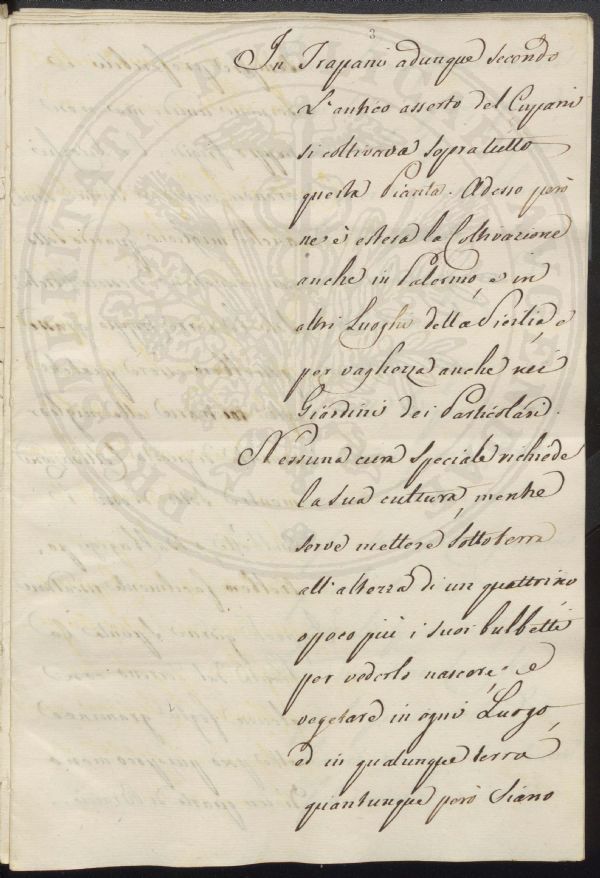 3
In Trapani adunque secondo
L'antico asserto del Cupani
si coltivava sopratutto
questa Pianta. Adesso però
ne è estesa la Coltivazione
anche in Palermo, e in
altri Luoghi della Sicilia, e
per vaghezza anche nei
Giardini dei Particolari.
Nessuna cura speciale richiede
la sua cultura, mentre
serve mettere sottoterra
all'altezza di un quattrino
opoco più i suoi bulbetti
per vederlo nascere, e
vegetare in ogni Luogo,
ed in qualunque terra
quantunque però siano